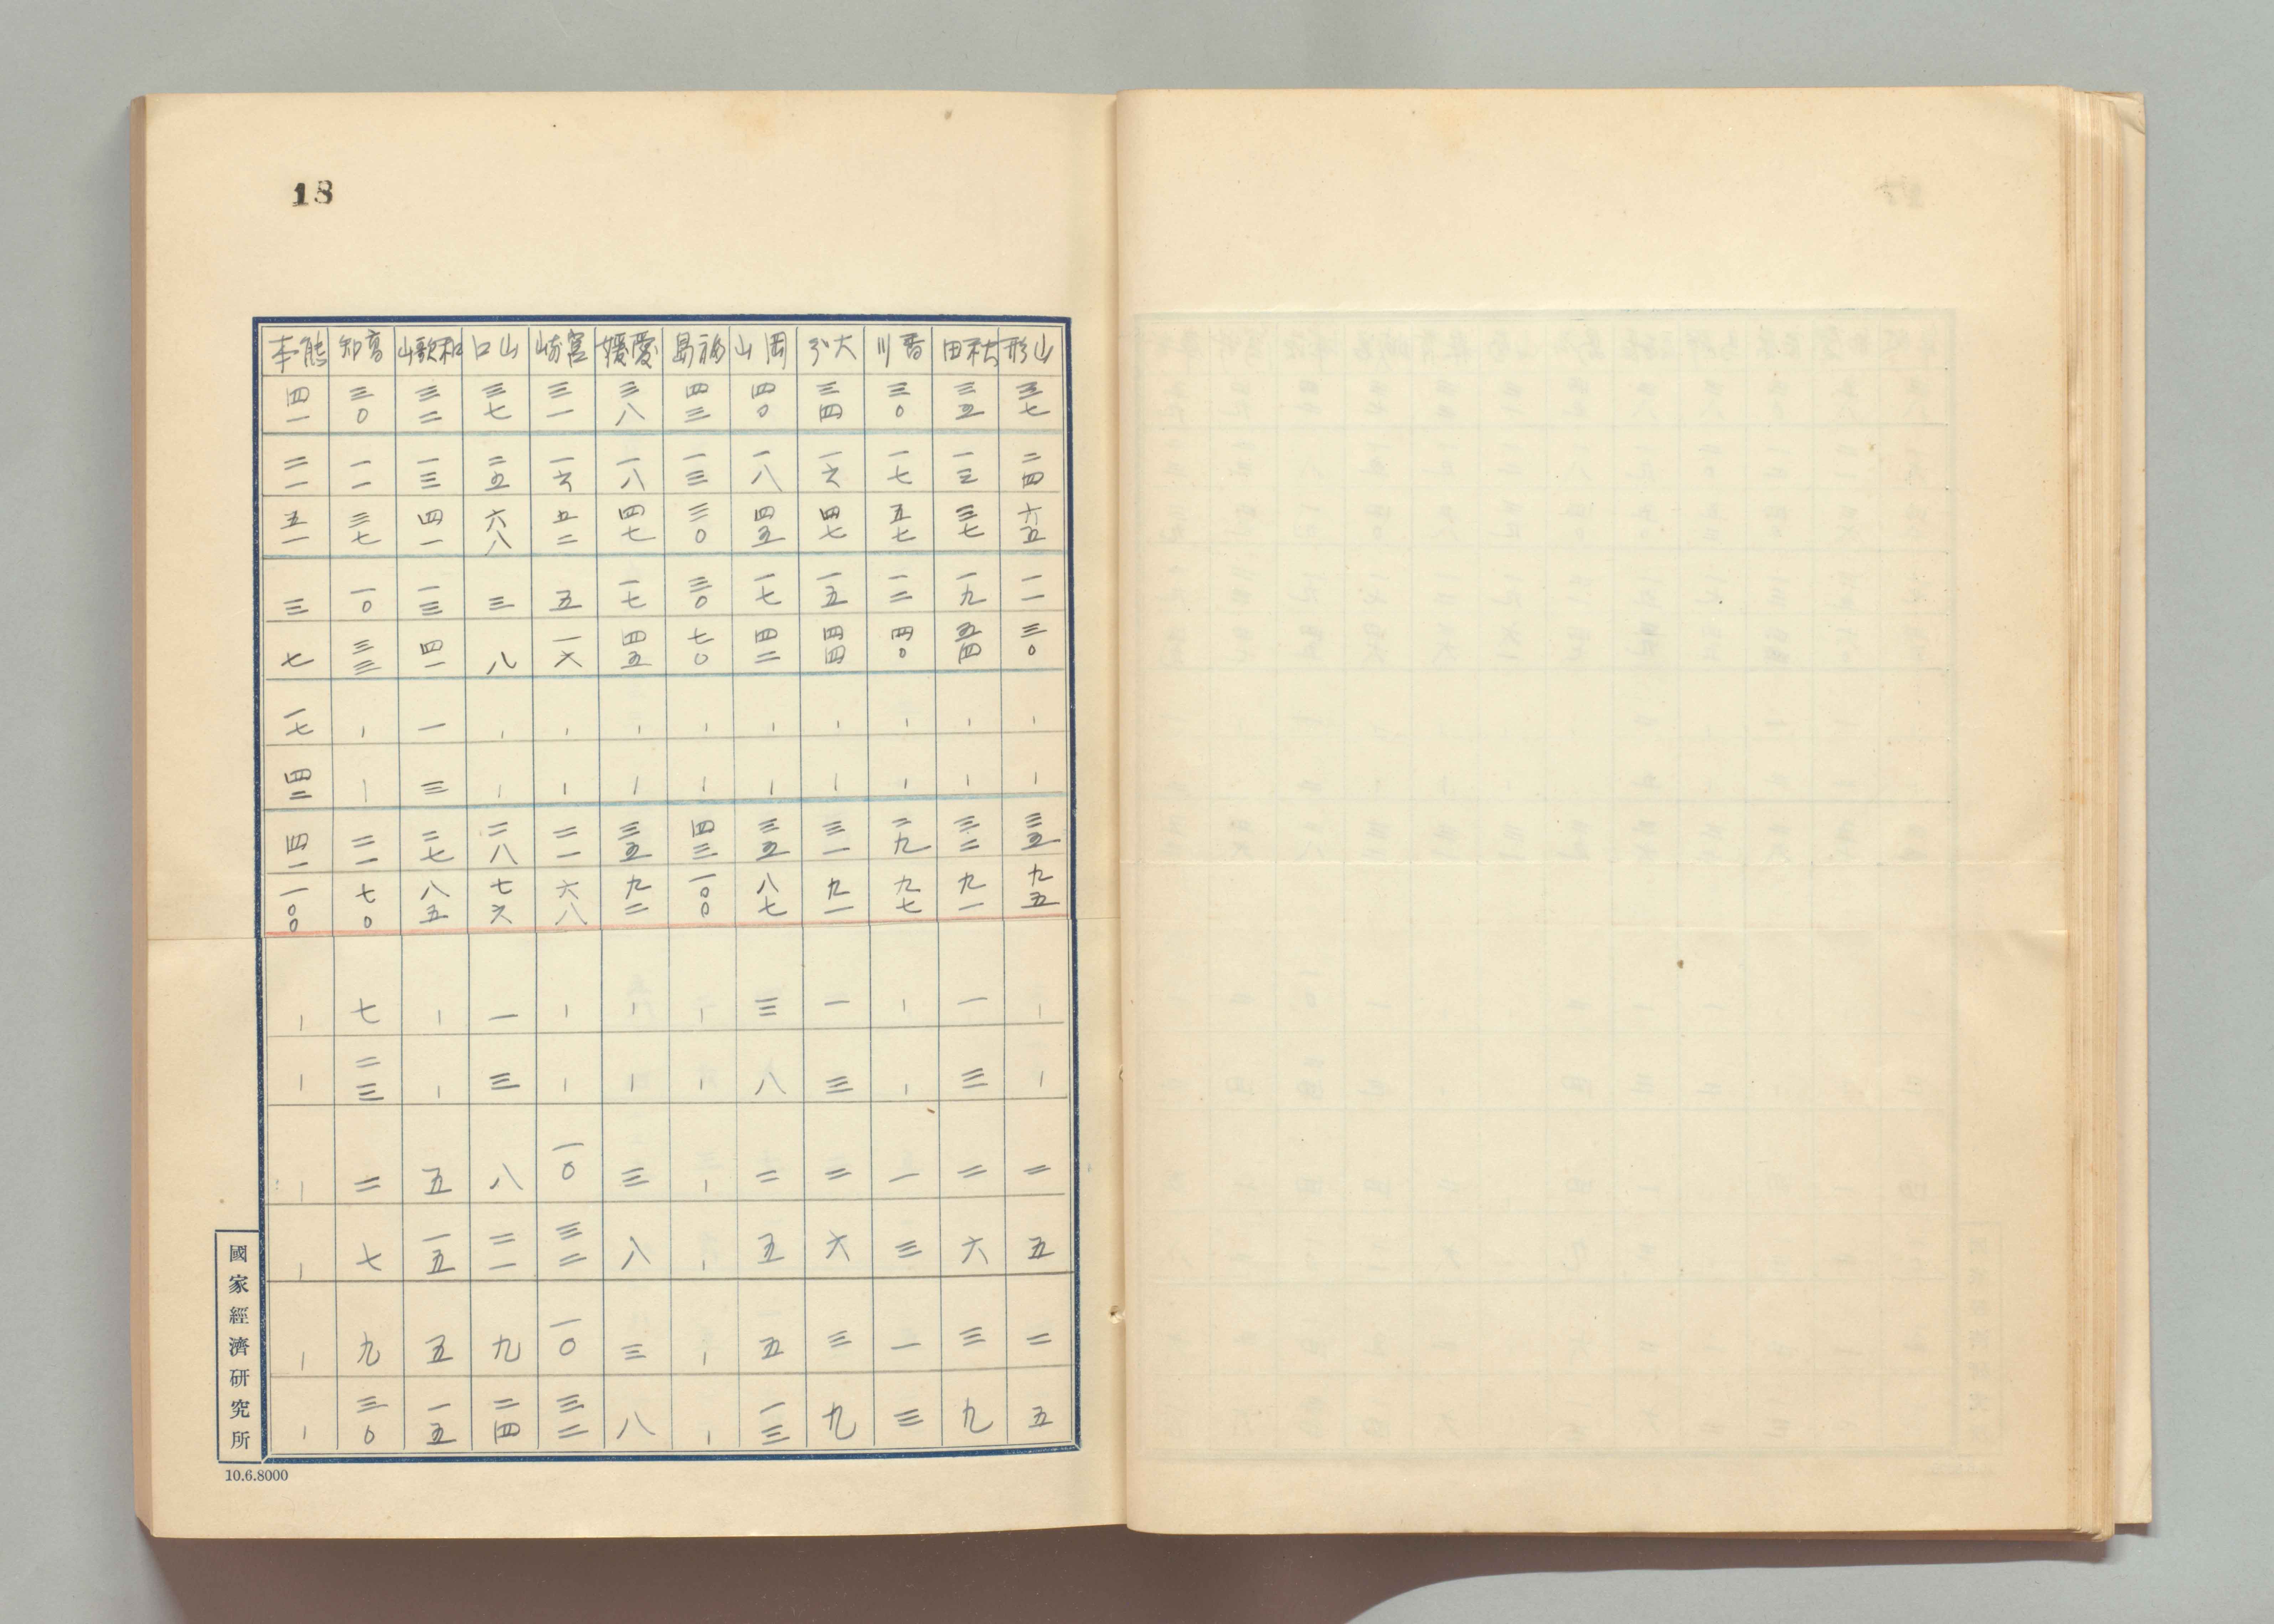 18
山形 三七 二四 六五 一一 三〇 ｜ ｜ 三五 九五 ｜ ｜ 二 五 二 五
秋田 三五 一三 三七 一九 五四 ｜ ｜ 三二 九一 一 三 二 六 三 九
香川 三〇 一七 五七 一二 四〇 ｜ ｜ 二九 九七 ｜ ｜ 一 三 一 三
大分 三四 一六 四七 一五 四四 ｜ ｜ 三一 九一 一 三 二 六 三 九
岡山 四〇 一八 四五 一七 四二 ｜ ｜ 三五 八七 三 八 二 五 五 一三
福島 四三 一三 三〇 三〇 七〇 ｜ ｜ 四三 一〇〇 ｜ ｜ ｜ ｜ ｜ ｜
愛媛 三八 一八 四七 一七 四五 ｜ ｜ 三五 九二 ｜ ｜ 三 八 三 八
宮崎 三一 一六 五二 五 一六 ｜ ｜ 二一 六八 ｜ ｜ 一〇 三二 一〇 三二
山口 三七 二五 六八 三 八 ｜ ｜ 二八 七六 一 三 八 二一 九 二四
和歌山 三二 一三 四一 一三 四一 一 三 二七 八五 ｜ ｜ 五 一五 五 一五
高知 三〇 一一 三七 一〇 三三 ｜ ｜ 二一 七〇 七 二三 二 七 九 三〇
熊本 四一 二一 五一 三 七 一七 四二 四一 一〇〇 ｜ ｜ ｜ ｜ ｜ ｜
國家經濟研究所
10.6.8000